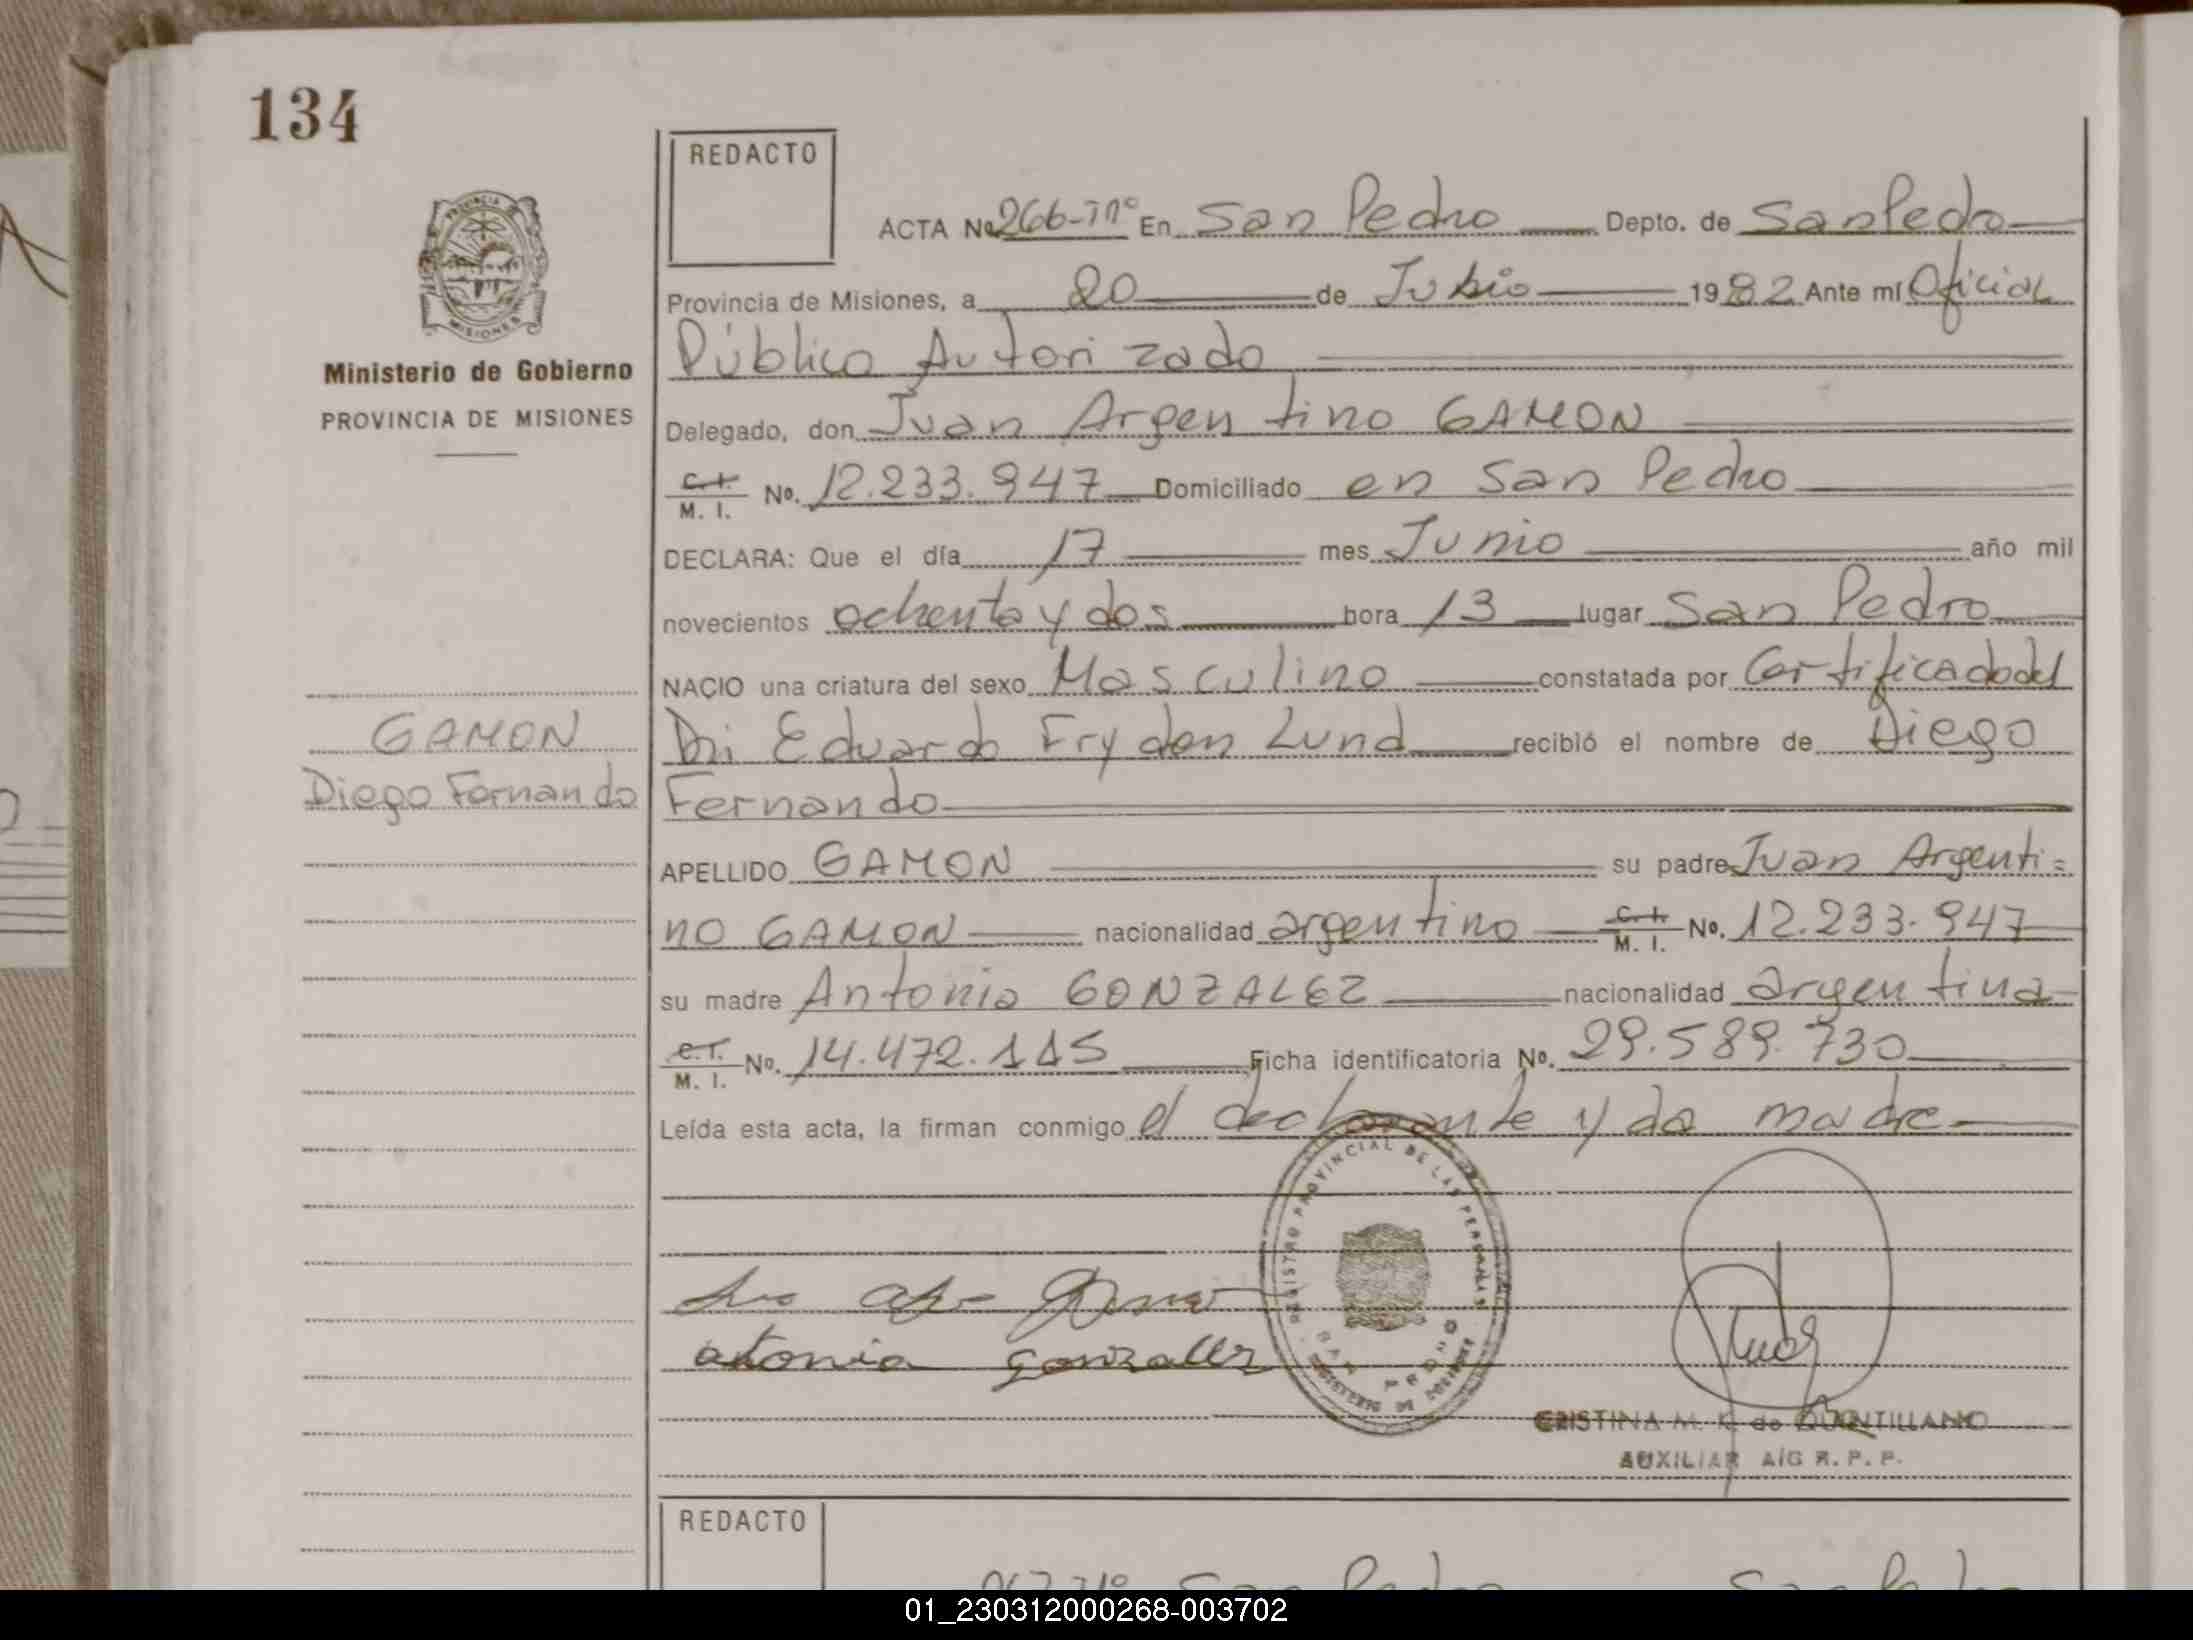 134
REDACTO
ACTA No 266-Tº En San Pedro Depto. de San Pedro
Provincia de Misiones, a 20 de Julio 1982 Ante mí Oficial
Público Autorizado
Ministerio de Gobierno
PROVINCIA DE MISIONES
Delegado, don Juan Argentino GAMON
C. I. M. I. No. 12.233.947 Domiciliado en San Pedro
DECLARA: Que el día 17 mes Junio año mil
novecientos ochenta y dos hora 13 lugar San Pedro
NACIO una criatura del sexo Masculino constatada por Certificado del
GAMON
Dr. Eduardo Frydon Lund recibió el nombre de Diego
Diego Fernando
Fernando
APELLIDO GAMON su padre Juan Argenti=
no GAMON nacionalidad argentino C. I. M. I. No. 12.233.947
su madre Antonia GONZALEZ nacionalidad argentina
C. I. M. I. No. 14.472.115 Ficha identificatoria No. 29.589.730
Leída esta acta, la firman conmigo el declarante y la madre
REGISTRO PROVINCIAL DE LAS PERSONAS
SAN PEDRO
MINISTERIO DE GOBIERNO
antonia gonzallez
CRISTINA M. K. de QUINTILLANO
AUXILIAR A/C R. P. P.
REDACTO
01_230312000268-003702